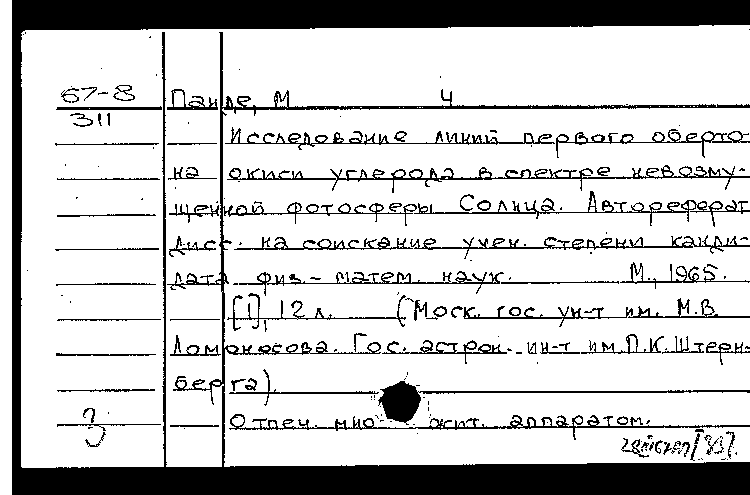 67-8
311
Панде, М 4
Исследование линий первого оберто-
на окиси углерода в спектре невозму-
щенной фотосферы Солнца. Автореферат
дисс. на соискание учен. степени канди-
дата физ.-матем. наук. М., 1965.
[1], 12 л. (Моск. гос. ун-т им. М.В.
Ломоносова. Гос. астрон. ин-т им. П.К. Штерн-
берга).
Отпеч. мно жит. аппаратом.
3